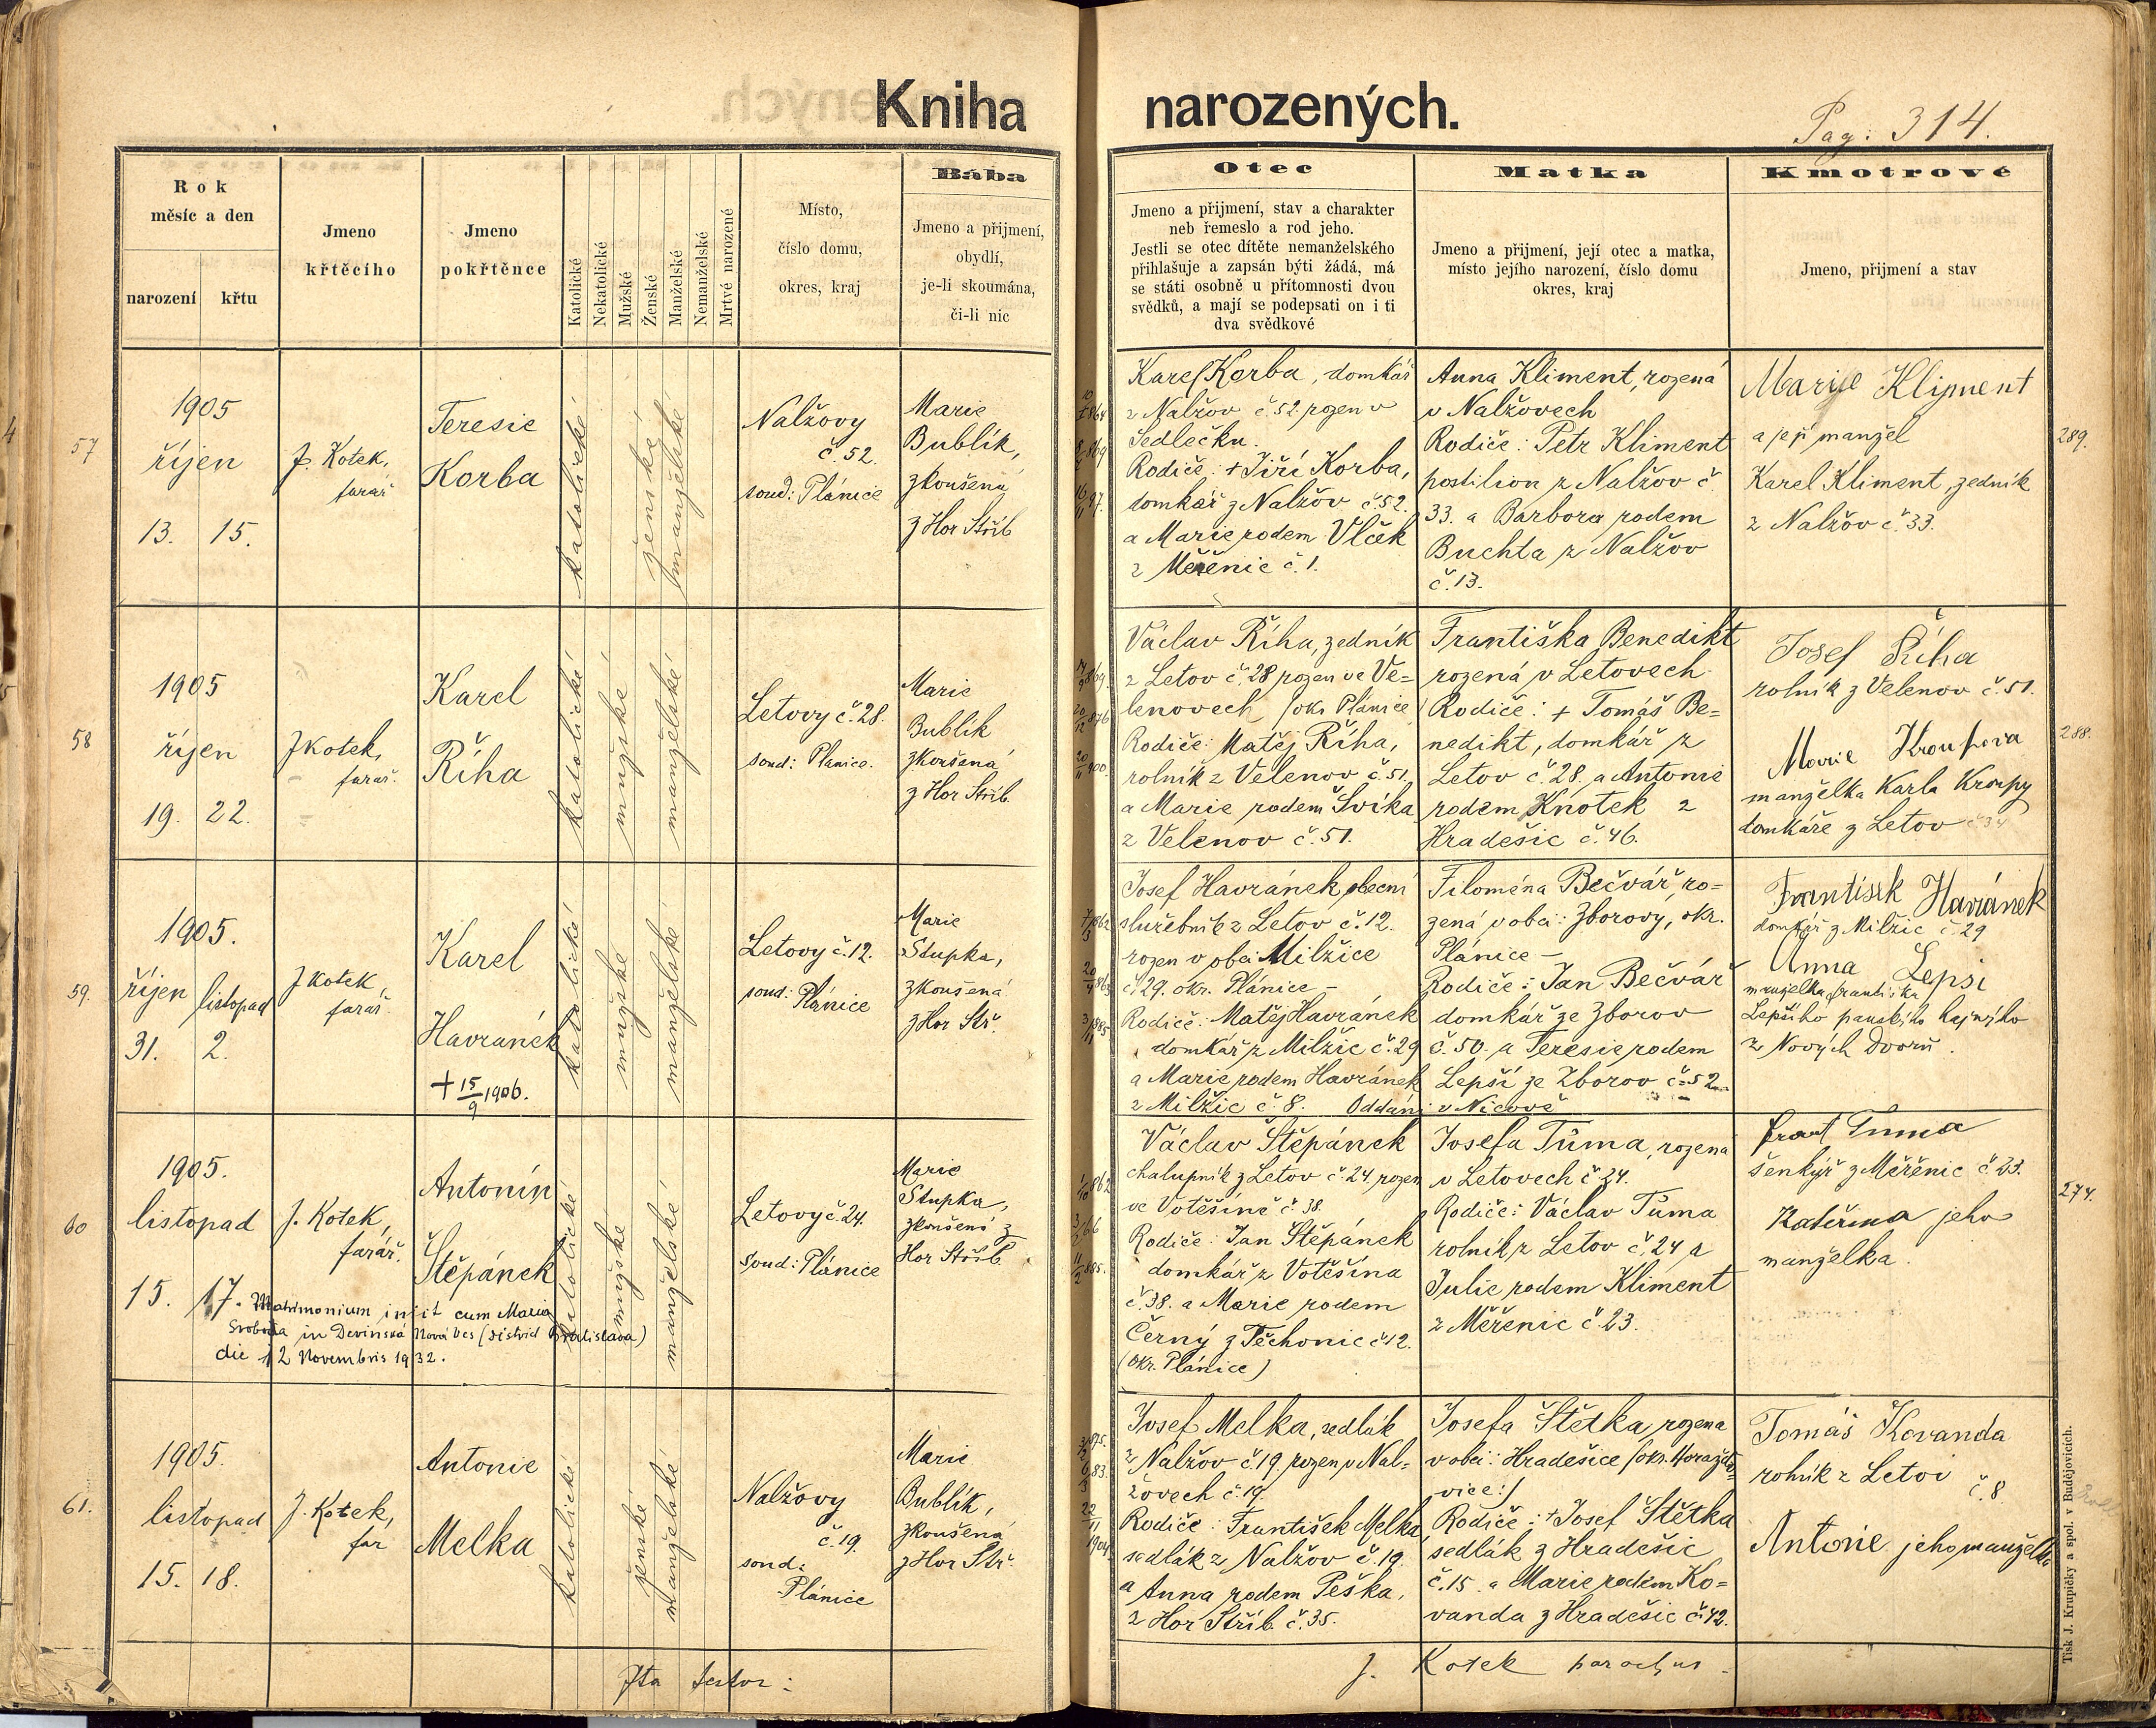 Kniha narozených.
Pag: 314.
Rok
měsíc a den
narození
křtu
Jmeno
křtěcího
Jmeno
pokřtěnce
Katolické
Nekatolické
Mužské
Ženské
Manželské
Nemanželské
Mrtvé narozené
Místo,
číslo domu,
okres, kraj
Bába
Jmeno a přijmení,
obydlí,
je-li skoumána,
či-li nic
Otec
Jmeno a přijmení, stav a charakter
neb řemeslo a rod jeho.
Jestli se otec dítěte nemanželského
přihlašuje a zapsán býti žádá, má
se státi osobně u přítomnosti dvou
svědků, a mají se podepsati on i ti
dva svědkové
Matka
Jmeno a přijmení, její otec a matka,
místo jejího narození, číslo domu
okres, kraj
Kmotrové
Jmeno, přijmení a stav
57
1905
říjen
13. 15.
J. Kotek,
farář
Teresie
Korba
katolické
ženské
manželské
Nalžovy
č. 52.
soud: Plánice
Marie
Bublík,
zkoušená
z Hor Stříb
Karel Korba, domkář
z Nalžov č. 52. rozen v
Sedlečku.
Rodiče: + Jiří Korba,
domkář z Nalžov č. 52.
a Marie rodem Vlček
z Měřenic č. 1.
Anna Kliment, rozená
v Nalžovech
Rodiče: Petr Kliment
postilion z Nalžov č
33. a Barbora rodem
Buchta z Nalžov
č. 13.
Marie Kliment
a její manžel
Karel Kliment, zedník
z Nalžov č. 33.
289.
58
1905
říjen
19. 22.
J Kotek,
farář.
Karel
Říha
katolické
mužské
manželské
Letovy č. 28.
soud: Plánice.
Marie
Bublík
zkoušená
z Hor Stříb.
Václav Říha, zedník
z Letov č. 28 rozen ve Ve=
lenovech (okr. Plánice)
Rodiče: Matěj Říha,
rolník z Velenov č. 51.
a Marie rodem Švíka
z Velenov č. 51.
Františka Benedikt
rozená v Letovech
Rodiče: + Tomáš Be=
nedikt, domkář z
Letov č. 28. a Antonie
rodem Knotek z
Hradešic č. 46.
Josef Říha
rolník z Velenov č. 51.
Marie Kroupova
manželka Karla Kroupy
domkáře z Letov č 34
288.
59.
1905.
říjen listopad
31. 2.
J Kotek,
farář.
Karel
Havránek
+ 15/9 1906.
katolické
mužské
manželské
Letovy č. 12.
soud: Plánice
Marie
Stupka,
zkoušená
z Hor Stř.
Josef Havránek, obecní
služebník z Letov č. 12.
rozen v obci Milžice
č. 29. okr. Plánice –
Rodiče: Matěj Havránek
domkář z Milžic č. 29
a Marie rodem Havránek
z Milžic č. 8. Oddáni v Nicově
Filoména Bečvář, ro=
zená v obci: Zborovy, okr.
Plánice –
Rodiče: Jan Bečvář
domkář ze Zborov
č. 50. a Teresie rodem
Lepší ze Zborov č. 52
František Havránek
domkář z Milžic č. 29
Anna Lepsi
manželka Františka
Lepšího panského hajného
z Nových Dvorů.
60
1905.
listopad
15. 17.
J. Kotek,
farář.
Antonín
Štěpánek
Matrimonium iniit cum Maria
Svoboda in Devinská Nová Ves (district Bratislava)
die 12 Novembris 1932.
katolické
mužské
manželské
Letovy č. 24.
soud: Plánice
Marie
Stupka,
zkoušená z
Hor Stříb.
Václav Štěpánek
chalupník z Letov č. 24. rozen
ve Votěšíně č. 38.
Rodiče: Jan Štěpánek
domkář z Votěšína
č. 38. a Marie rodem
Černý z Těchonic č. 12.
(okr. Plánice)
Josefa Tůma, rozená
v Letovech č. 24.
Rodiče: Václav Tůma
rolník z Letov č. 24 a
Julie rodem Kliment
z Měřenic č. 23.
Frant Tuma
šenkýř z Měřenic č. 23.
Kateřina jeho
manželka.
274.
61.
1905.
listopad
15. 18.
J. Kotek,
far
Antonie
Melka
katolické
ženské
manželské
Nalžovy
č. 19.
soud:
Plánice
Marie
Bublík,
zkoušená
z Hor Stř.
Josef Melka, sedlák
z Nalžov č. 19. rozen v Nal=
žovech č. 19.
Rodiče: František Melka,
sedlák z Nalžov č. 19.
a Anna rodem Peška,
z Hor Stříb. č. 35.
Josefa Štětka, rozena
v obci: Hradešice (okr. Horažďo=
vice:)
Rodiče: + Josef Štětka
sedlák z Hradešic
č. 15. a Marie rodem Ko=
vanda z Hradešic č. 42.
Tomáš Kovanda
rolník z Letov č. 8.
Antonie jeho manželka
Ita testor:
J. Kotek parochus
Tisk J. Krupičky a spol. v Budějovicích.